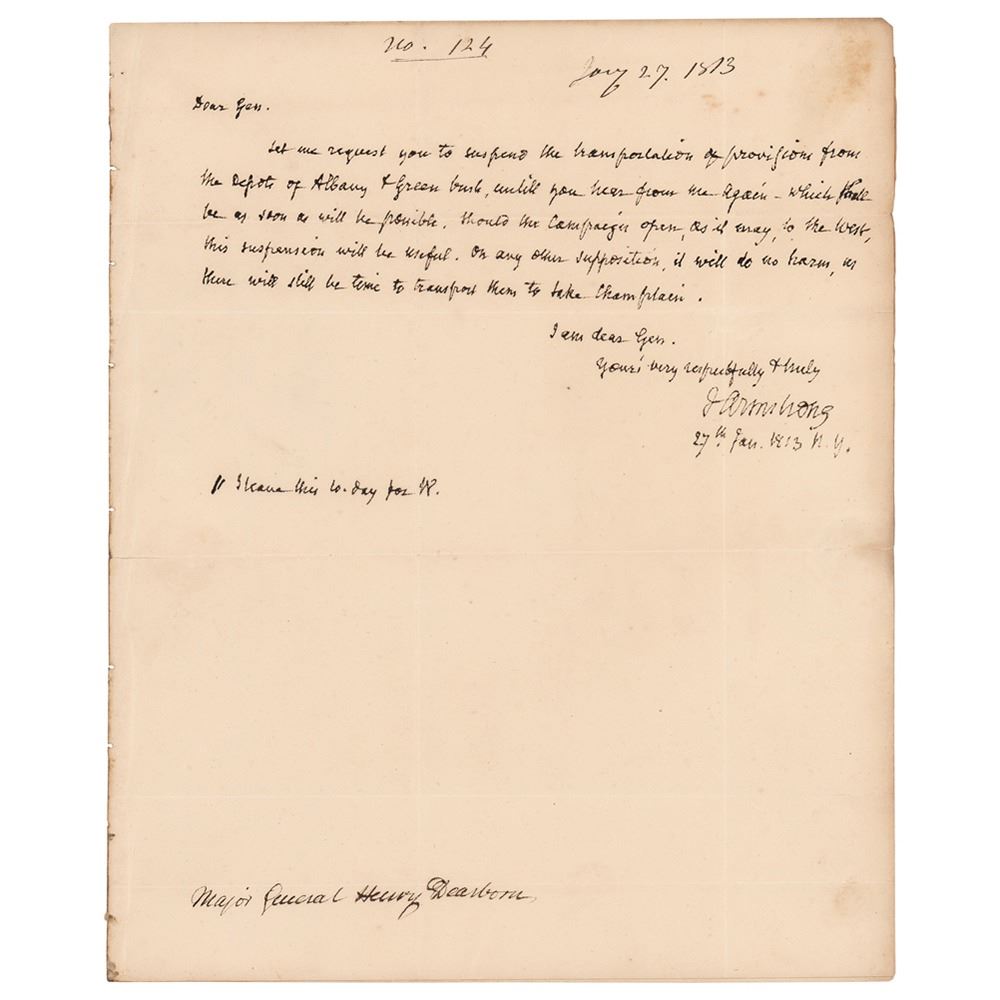 No. 124
Jany 27. 1813
Dear Gen.
Let me request you to suspend the transportation of provisions from
the Depots of Albany & Green bush, untill you hear from me again – which shall
be as soon as will be possible. Should the Campaign open, as it may, to the West,
this suspension will be useful. On any other supposition, it will do no harm, as
there will still be time to transport them to Lake Champlain.
I am dear Gen.
Your's very respectfully & truly
J Armstrong
27th Jan. 1813 N.Y.
// I leave this to-day for W.
Major General Henry Dearborn